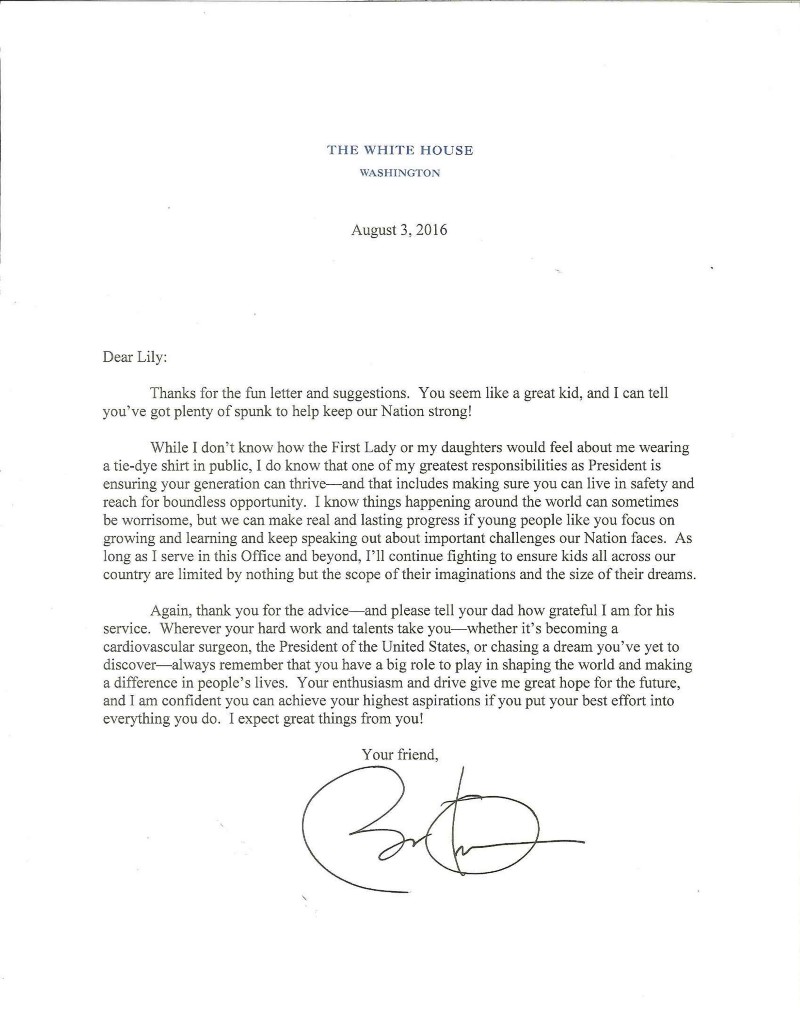 THE WHITE HOUSE
WASHINGTON
August 3, 2016
Dear Lily:
Thanks for the fun letter and suggestions. You seem like a great kid, and I can tell
you've got plenty of spunk to help keep our Nation strong!
While I don't know how the First Lady or my daughters would feel about me wearing
a tie-dye shirt in public, I do know that one of my greatest responsibilities as President is
ensuring your generation can thrive—and that includes making sure you can live in safety and
reach for boundless opportunity. I know things happening around the world can sometimes
be worrisome, but we can make real and lasting progress if young people like you focus on
growing and learning and keep speaking out about important challenges our Nation faces. As
long as I serve in this Office and beyond, I'll continue fighting to ensure kids all across our
country are limited by nothing but the scope of their imaginations and the size of their dreams.
Again, thank you for the advice—and please tell your dad how grateful I am for his
service. Wherever your hard work and talents take you—whether it's becoming a
cardiovascular surgeon, the President of the United States, or chasing a dream you've yet to
discover—always remember that you have a big role to play in shaping the world and making
a difference in people's lives. Your enthusiasm and drive give me great hope for the future,
and I am confident you can achieve your highest aspirations if you put your best effort into
everything you do. I expect great things from you!
Your friend,